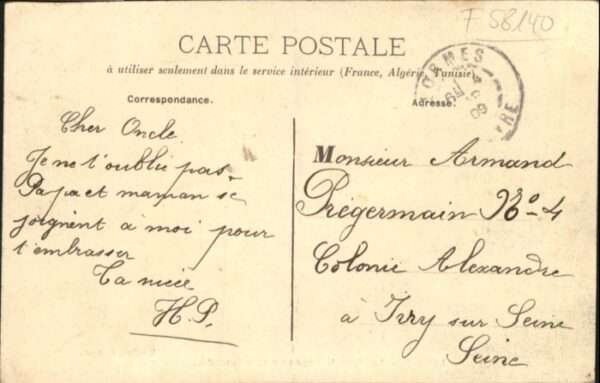 F 58140
CARTE POSTALE
à utiliser seulement dans le service intérieur (France, Algérie, Tunisie)
Correspondance.
Adresse.
Cher Oncle
Je ne t'oublie pas.
Papa et maman se
joignent à moi pour
t'embrasser
Ta nièce
H.P.
Monsieur Armand
Prégermain No 4
Colonie Alexandre
à Ivry sur Seine
Seine